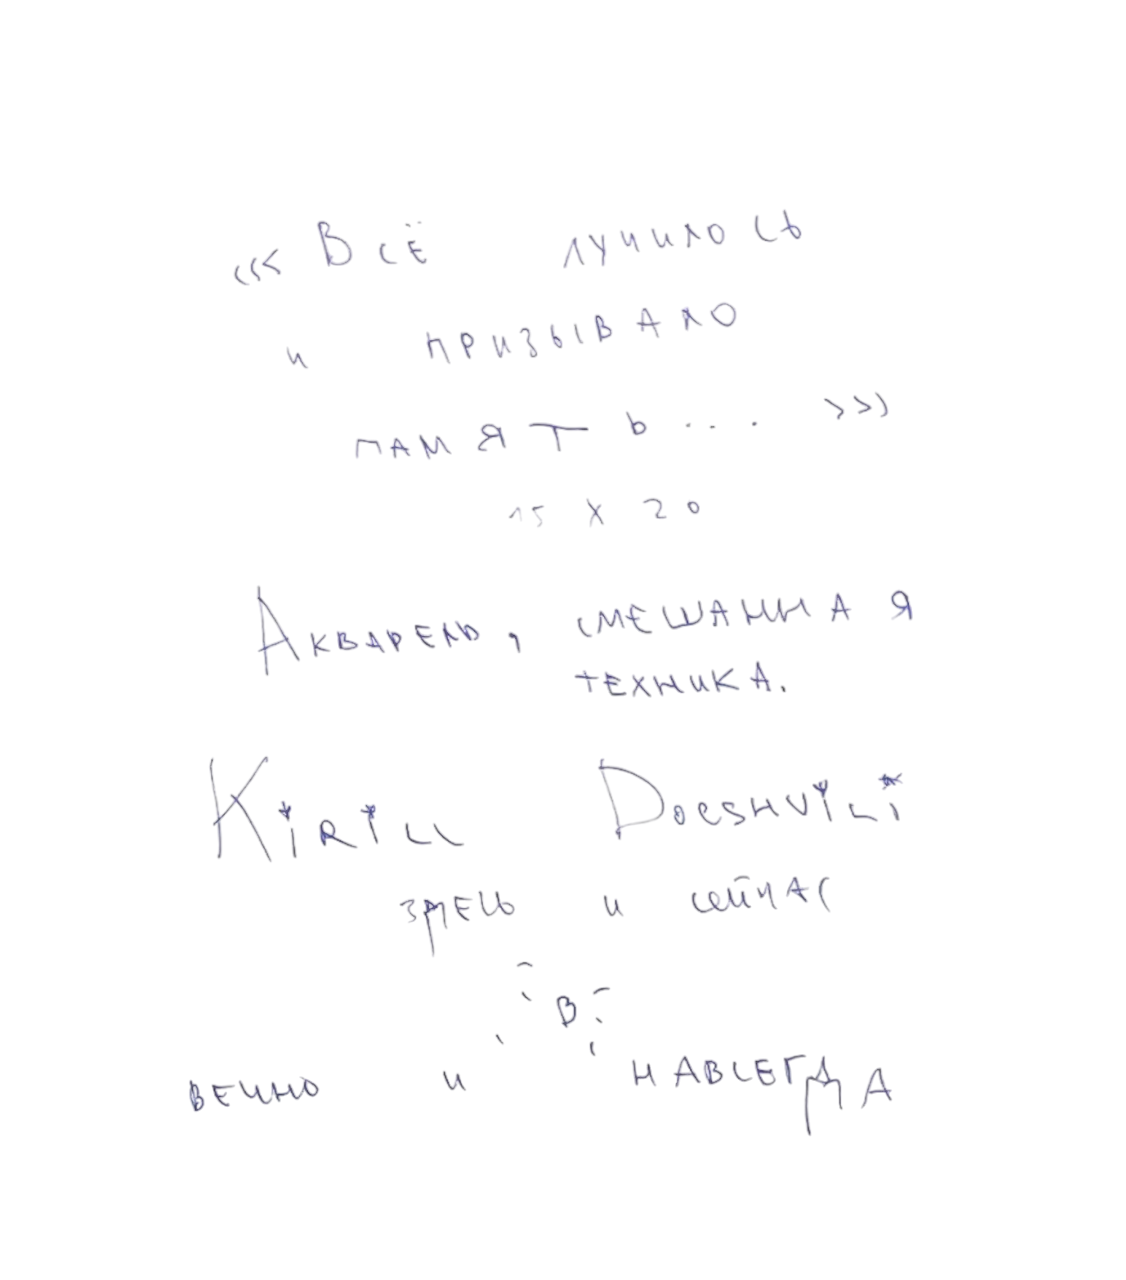 ‹‹‹ Всё лучилось
и призывало
память... ›››
15 х 20
Акварель, смешанная
техника.
Kirill Doeshvili
здесь и сейчас
в
вечно и навсегда